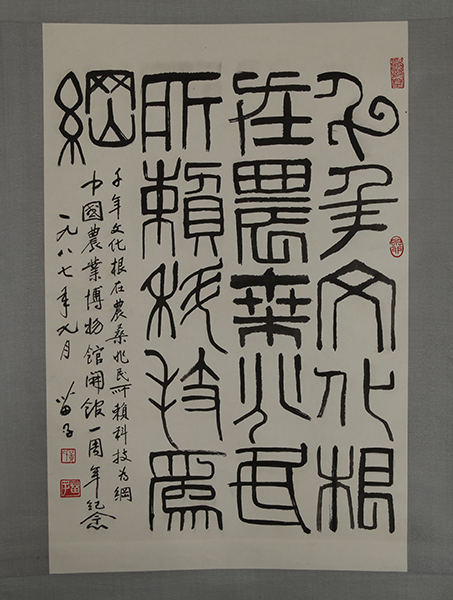 千年文化根
在農桑兆民
所賴科技為
綱
千年文化根在農桑兆民所賴科技為綱
中國農業博物館開館一周年紀念
一九八七年九月 苗子